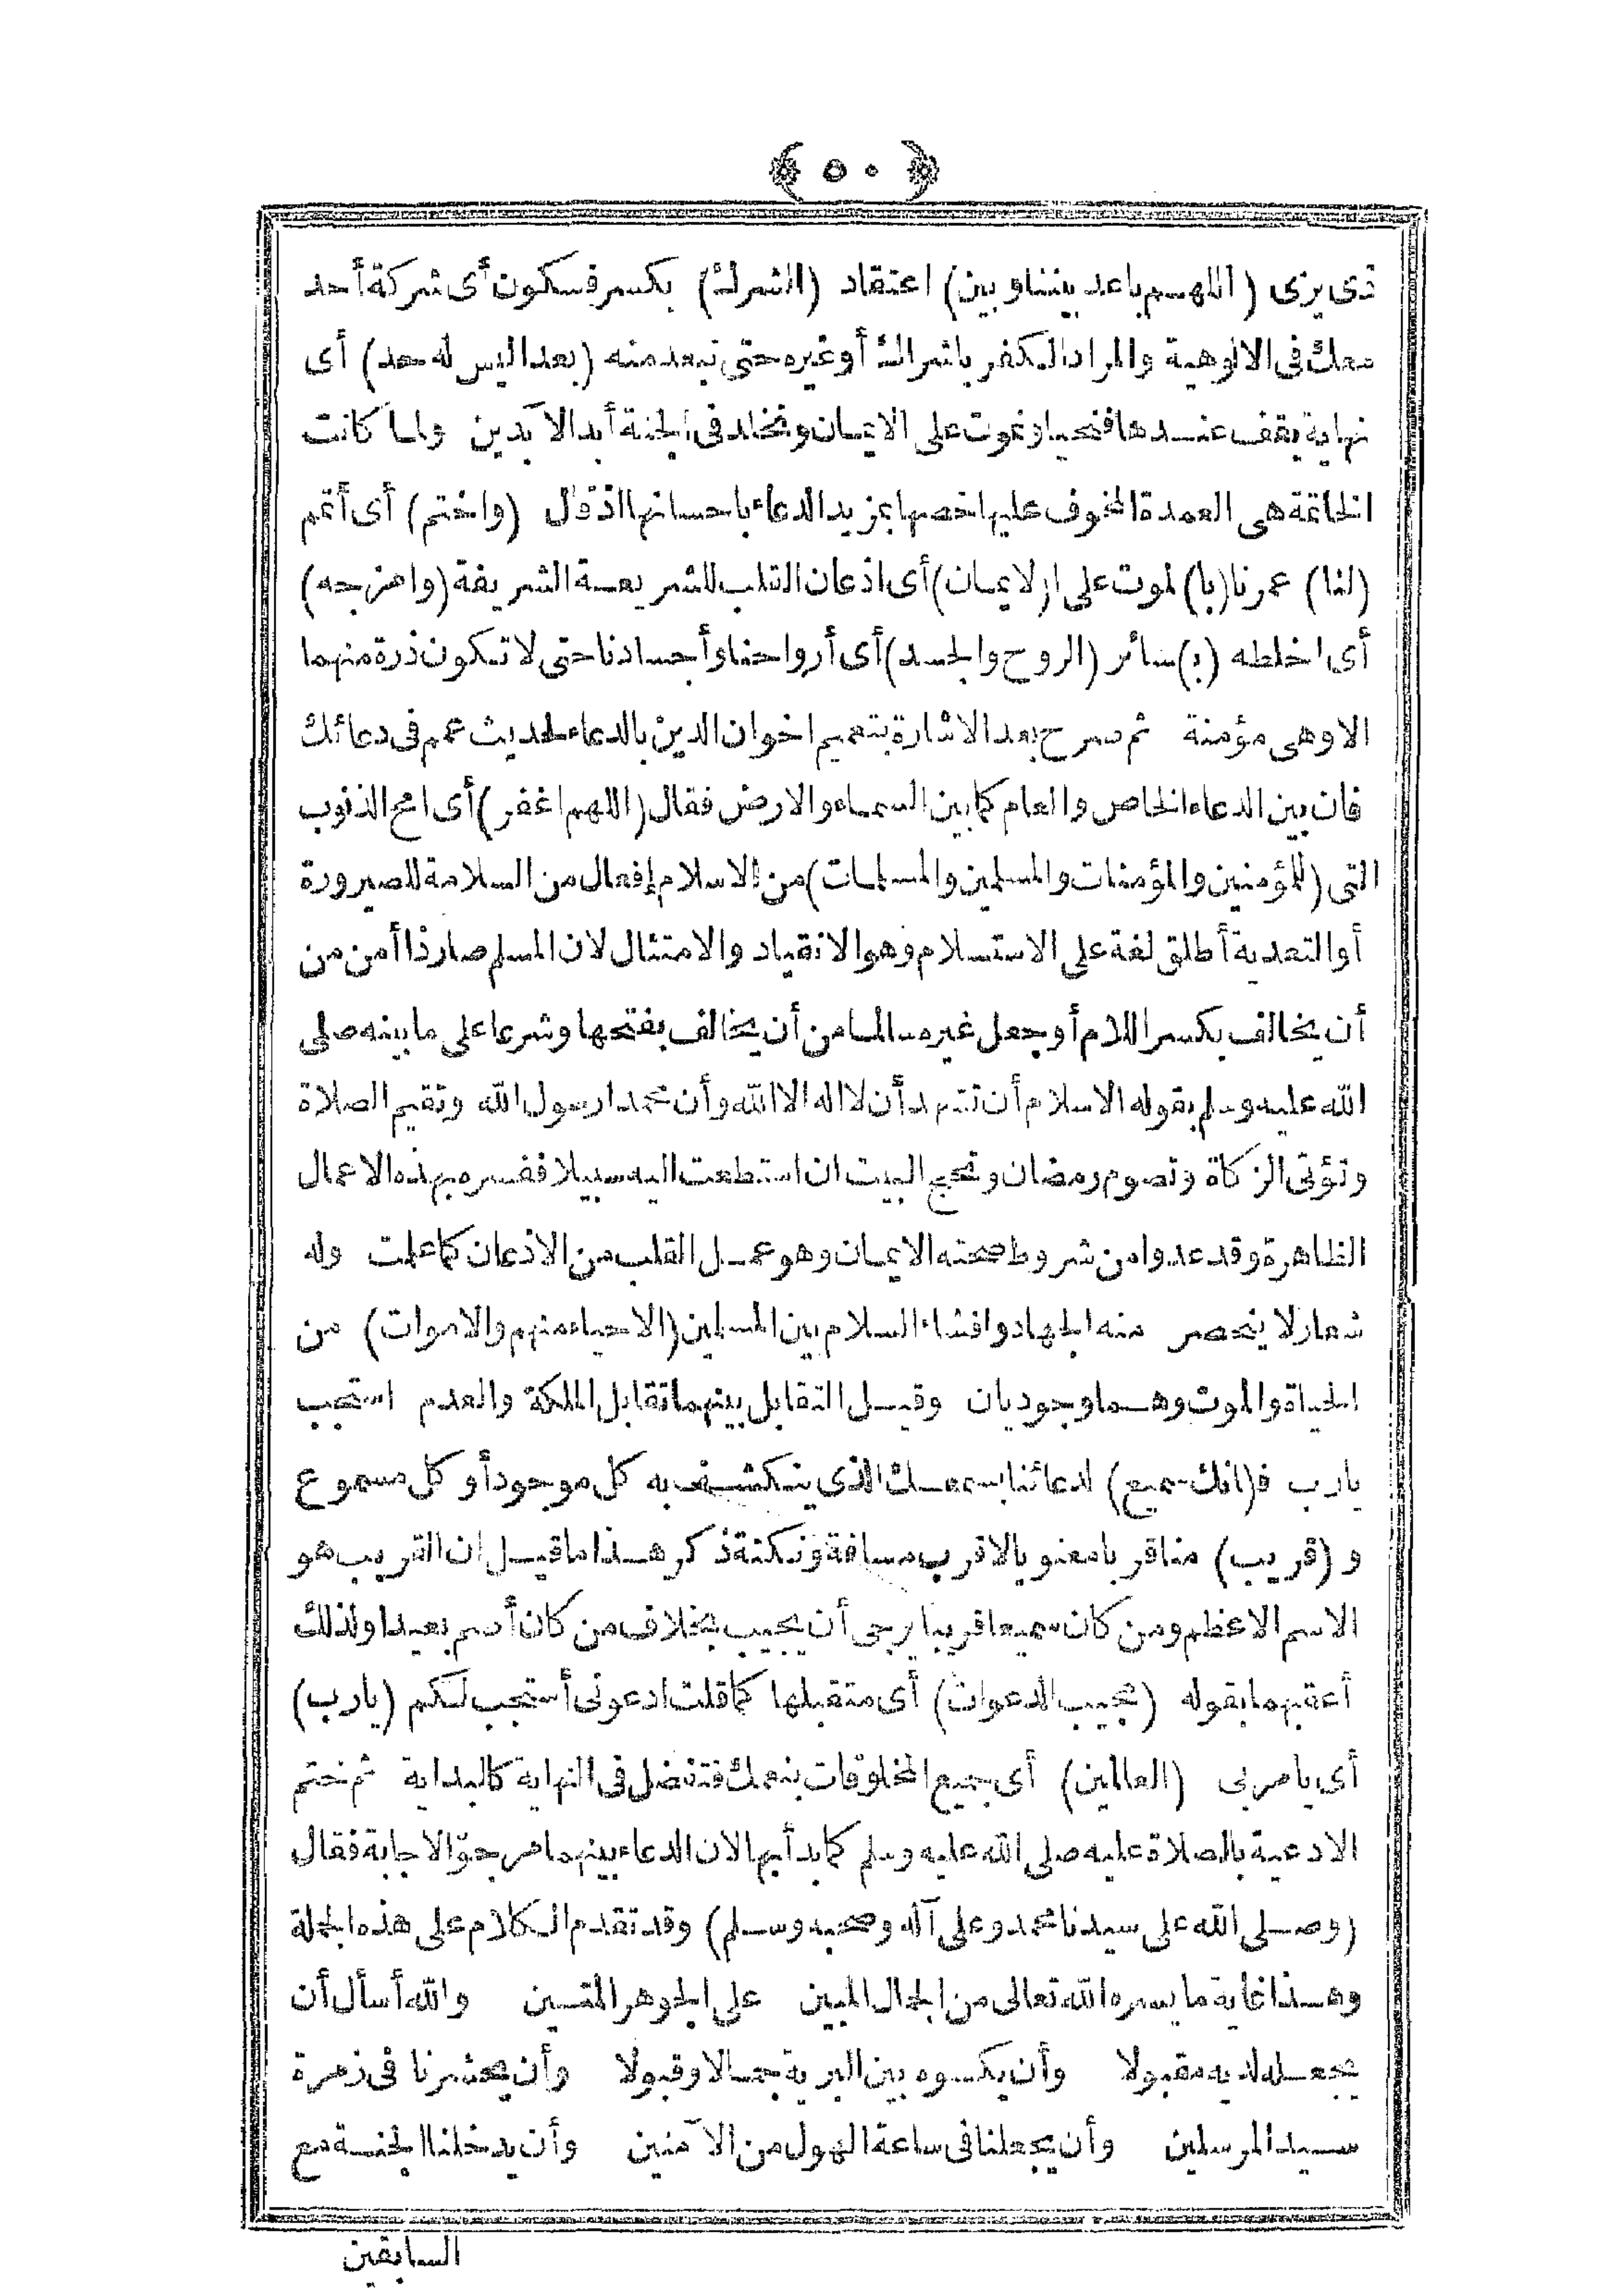 ﴿ ٥٠ ﴾
ذى يزى (اللهم باعد بيننا وبين) اعتقاد (الشرك) بكسر فسكون أى شركة أحد
معك فى الالوهية والمراد الكفر باشراك أوغيره حتى نبعد منه (بعدا ليس له حد) أى
نهاية يقف عندها فنحيا ونموت على الايمان ونخلد فى الجنة أبد الآبدين ولما كانت
الخاتمة هى العمدة المخوف عليها خصها بمزيد الدعاء باحسانها اذ قال (واختم) أى أتمم
(لنا) عمرنا (با) لموت على (الايمان) أى اذعان القلب للشريعة الشريفة (وامزجه)
أى اخلطه (ب) سائر (الروح والجسد) أى أرواحنا وأجسادنا حتى لا تكون ذرة منهما
الا وهى مؤمنة ثم صرح بعد الاشارة بتعميم اخوان الدين بالدعاء لحديث عمم فى دعائك
فان بين الدعاء الخاص والعام كما بين السماء والارض فقال (اللهم اغفر) أى امح الذنوب
التى (للمؤمنين والمؤمنات والمسلمين والمسلمات) من الاسلام إفعال من السلامة للصيرورة
أو التعدية أطلق لغة على الاستسلام وهو الانقياد والامتثال لان المسلم صار ذا أمن من
أن يخالف بكسر اللام أو جعل غيره سالما من أن يخالف بفتحها وشرعا على ما بينه صلى
الله عليه وسلم بقوله الاسلام أن تشهد أن لا اله الا الله وأن محمدا رسول الله وتقيم الصلاة
وتؤتى الزكاة وتصوم رمضان وتحج البيت ان استطعت اليه سبيلا ففسره بهذه الاعمال
الظاهرة وقد عدوا من شروط صحته الايمان وهو عمل القلب من الاذعان كما علمت وله
شعار لا ينحصر منه الجهاد وافشاء السلام بين المسلمين (الاحياء منهم والاموات) من
الحياة والموت وهما وجوديان وقيل التقابل بينهما تقابل الملكة والعدم استجب
يارب ف(انك سميع) لدعائنا بسمعك الذى ينكشف به كل موجود أو كل مسموع
و (قريب) منا قربا معنويا لا قرب مسافة ونكتة ذكر هذا ما قيل ان القريب هو
الاسم الاعظم ومن كان سميعا قريبا يرجى أن يجيب بخلاف من كان أصم بعيدا ولذلك
أعقبهما بقوله (مجيب الدعوات) أى متقبلها كما قلت ادعونى أستجب لكم (يارب)
أى يا مربى (العالمين) أى جميع المخلوقات بنعمك فتفضل فى النهاية كالبداية ثم ختم
الادعية بالصلاة عليه صلى الله عليه وسلم كما بدأ بها لان الدعاء بينهما مرجوّ الاجابة فقال
(وصلى الله على سيدنا محمد وعلى آله وصحبه وسلم) وقد تقدم الكلام على هذه الجملة
وهذا غاية ما يسره الله تعالى من الجمال المبين على الجوهر الثمين والله أسأل أن
يجعله لديه مقبولا وأن يكسوه بين البرية جمالا وقبولا وأن يحشرنا فى زمرة
سيد المرسلين وأن يجعلنا فى ساعة الهول من الآمنين وأن يدخلنا الجنة مع
السابقين